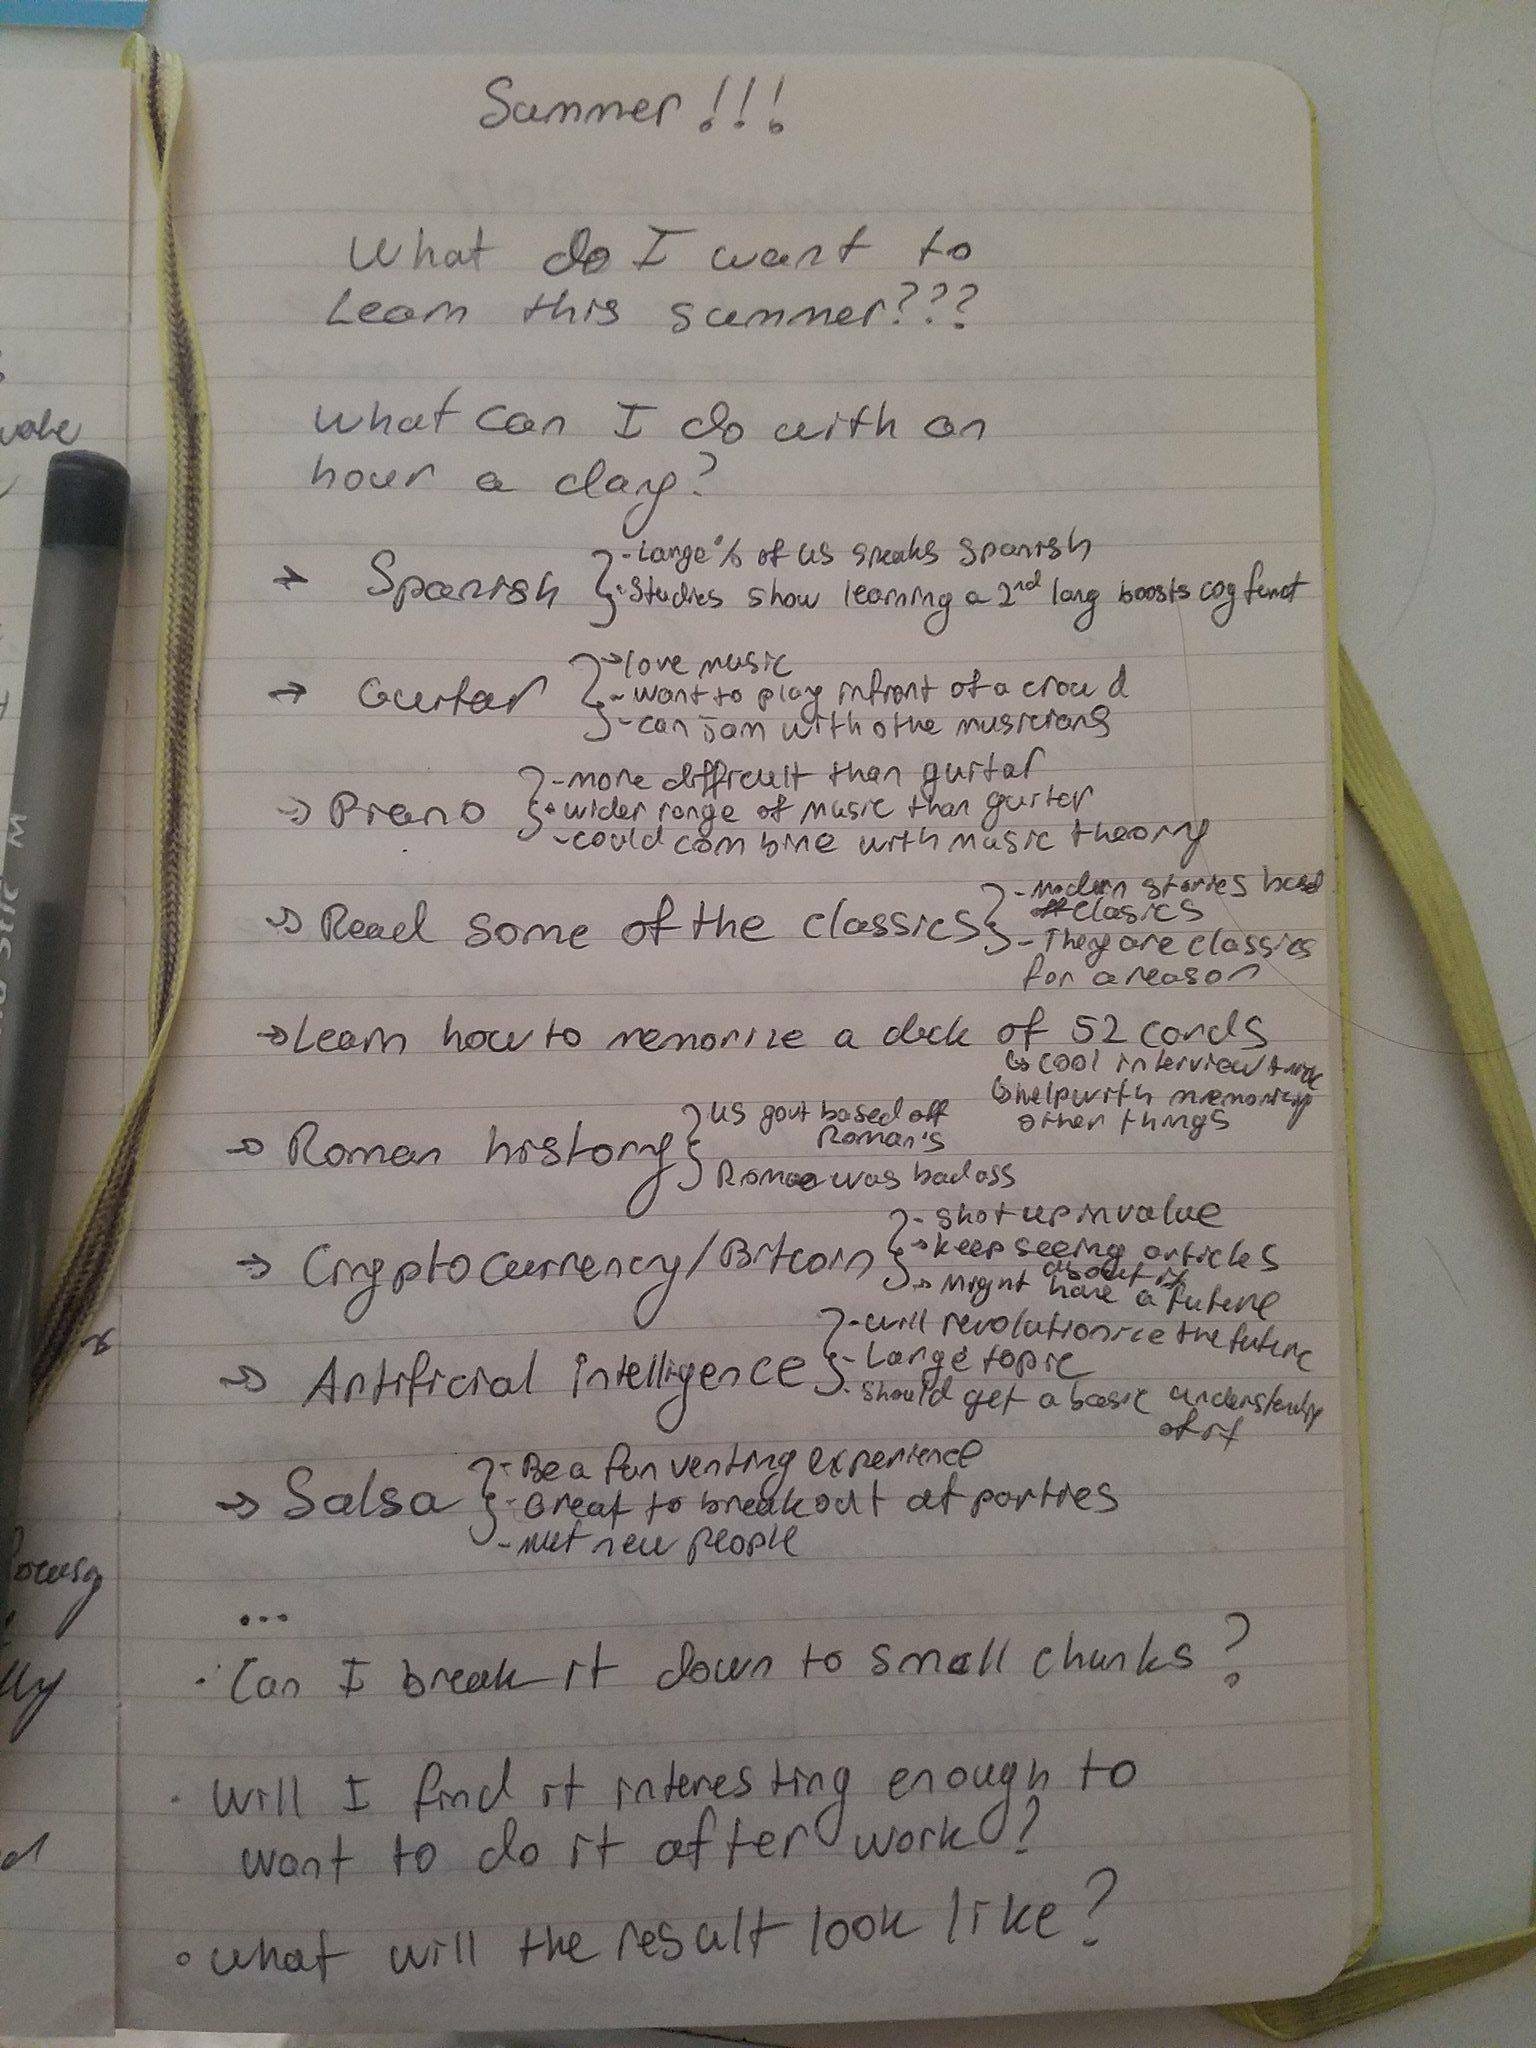 Summer!!!
What do I want to
Learn this summer???
What can I do with an
hour a day?
→ Spanish { - Large % of US speaks Spanish
- Studies show learning a 2nd lang boosts cog funct
→ Guitar { → love music
- want to play infront of a crowd
- can jam with othe musicians
→ Piano { - more difficult than guitar
• wider range of music than guitar
- could combine with music theory
→ Read some of the classics { - modern stories based
off clasics
- They are classics
for a reason
→ Learn how to memorize a deck of 52 cards
↳ cool interview
↳ help with memorizing
other things
→ Roman history { US govt based off
Roman's
Rome was badass
→ Cryptocurrency/Bitcoin { - shot up in value
→ keep seeing articles
about it
→ Might have a future
→ Artificial intelligence { - will revolutionice the future
- Large topic
- should get a basic understanding
of it
→ Salsa { - Be a fun venting experience
- Great to break out at parties
- met new people
...
• Can I break it down to small chunks?
• Will I find it interesting enough to
want to do it after work?
• what will the result look like?
lly
M